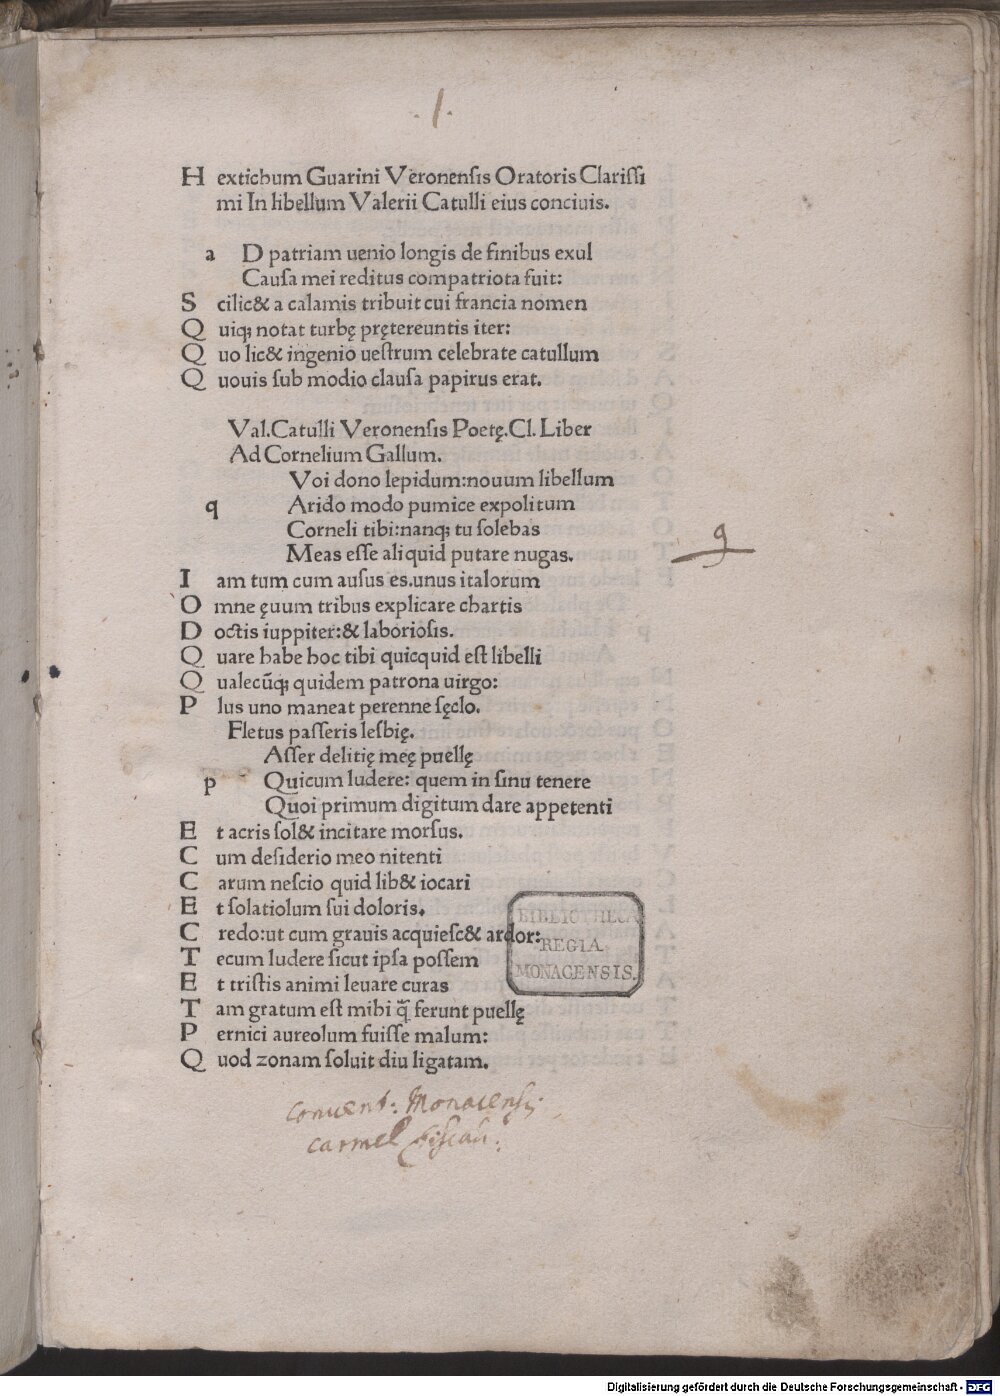 .1.
H extichum Guarini Veronensis Oratoris Clarissi
mi In libellum Valerii Catulli eius conciuis.
a D patriam uenio longis de finibus exul
Causa mei reditus compatriota fuit:
S cilic& a calamis tribuit cui francia nomen
Q uiqꝫ notat turbę prętereuntis iter:
Q uo lic& ingenio uestrum celebrate catullum
Q uouis sub modio clausa papirus erat.
Val.Catulli Veronensis Poetę.Cl.Liber
Ad Cornelium Gallum.
Voi dono lepidum:nouum libellum
q Arido modo pumice expolitum
Corneli tibi:nanqꝫ tu solebas
Meas esse aliquid putare nugas.
I am tum cum ausus es.unus italorum
O mne ęuum tribus explicare chartis
D octis iuppiter:& laboriosis.
Q uare habe hoc tibi quicquid est libelli
Q ualecūqꝫ quidem patrona uirgo:
P lus uno maneat perenne sęclo.
Fletus passeris lesbię.
Asser delitię meę puellę
p Quicum ludere: quem in sinu tenere
Quoi primum digitum dare appetenti
E t acris sol& incitare morsus.
C um desiderio meo nitenti
C arum nescio quid lib& iocari
E t solatiolum sui doloris.
C redo:ut cum grauis acquiesc& ardor:
T ecum ludere sicut ipsa possem
E t tristis animi leuare curas
T am gratum est mihi q̄ ferunt puellę
P ernici aureolum fuisse malum:
Q uod zonam soluit diu ligatam.
BIBLIOTHECA
REGIA
MONACENSIS.
Conuent: Monacensis
carmel
Digitalisierung gefördert durch die Deutsche Forschungsgemeinschaft - DFG